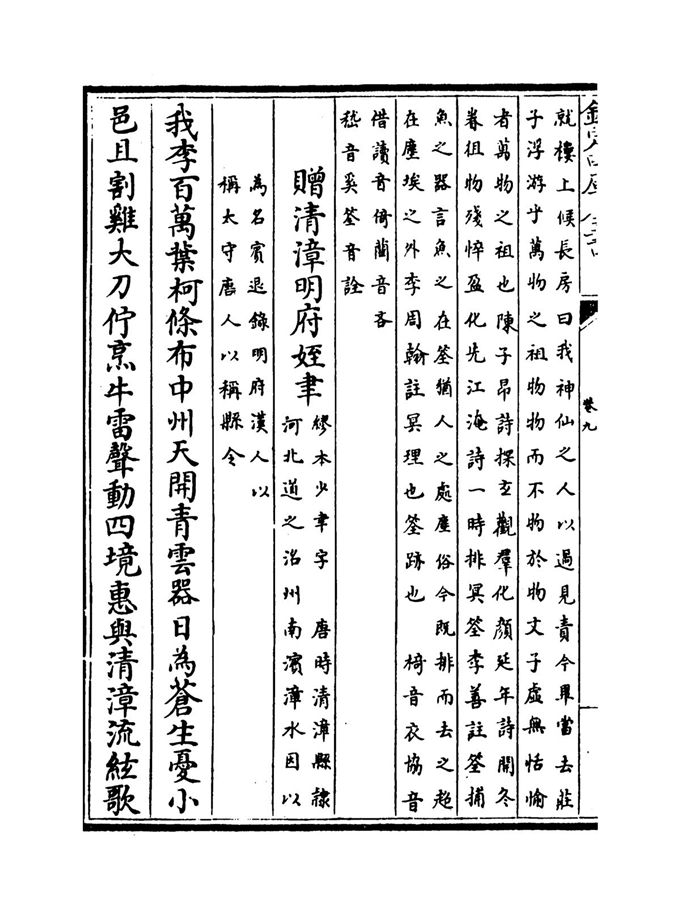 卷九
就樓上候長房曰我神仙之人以過見責今畢當去莊
子浮游乎萬物之祖物物而不物於物文子虛無恬愉
者萬物之祖也陳子昂詩探玄觀羣化顔延年詩開冬
眷徂物殘悴盈化先江淹詩一時排冥筌李善註筌捕
魚之器言魚之在筌猶人之處塵俗今既排而去之超
在塵埃之外李周翰註冥理也筌跡也 椅音衣協音
借讀音倚藺音吝
嵇音奚筌音詮
贈清漳明府姪聿
繆本少聿字 唐時清漳縣隸
河北道之洺州南濱漳水因以
為名賓退録明府漢人以
稱太守唐人以稱縣令
我李百萬葉柯條布中州天開青雲器日為蒼生憂小
邑且割雞大刀佇烹牛雷聲動四境惠與清漳流絃歌